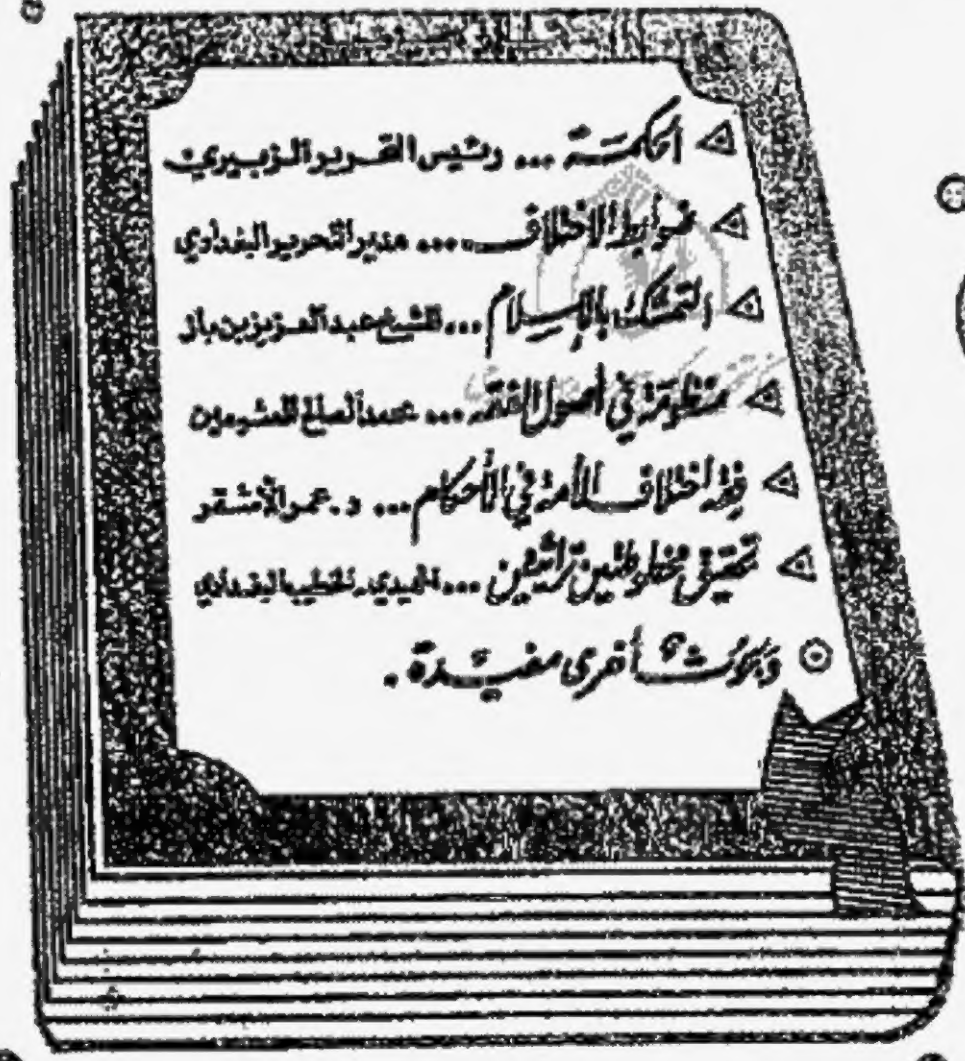 الحكمــة ... رئيس التحرير الزبيري
ضوابط الاختلاف ... مدير التحرير البغدادي
التمسك بالإسلام ... للشيخ عبد العزيز بن باز
منظومة في أصول الفقه ... محمد الصالح العثيمين
فقه اختلاف الأمة في الأحكام ... د. عمر الأشقر
تحقيق مخطوطتين تراثيتين ... البغدادي
وبحوث أخرى مفيدة .